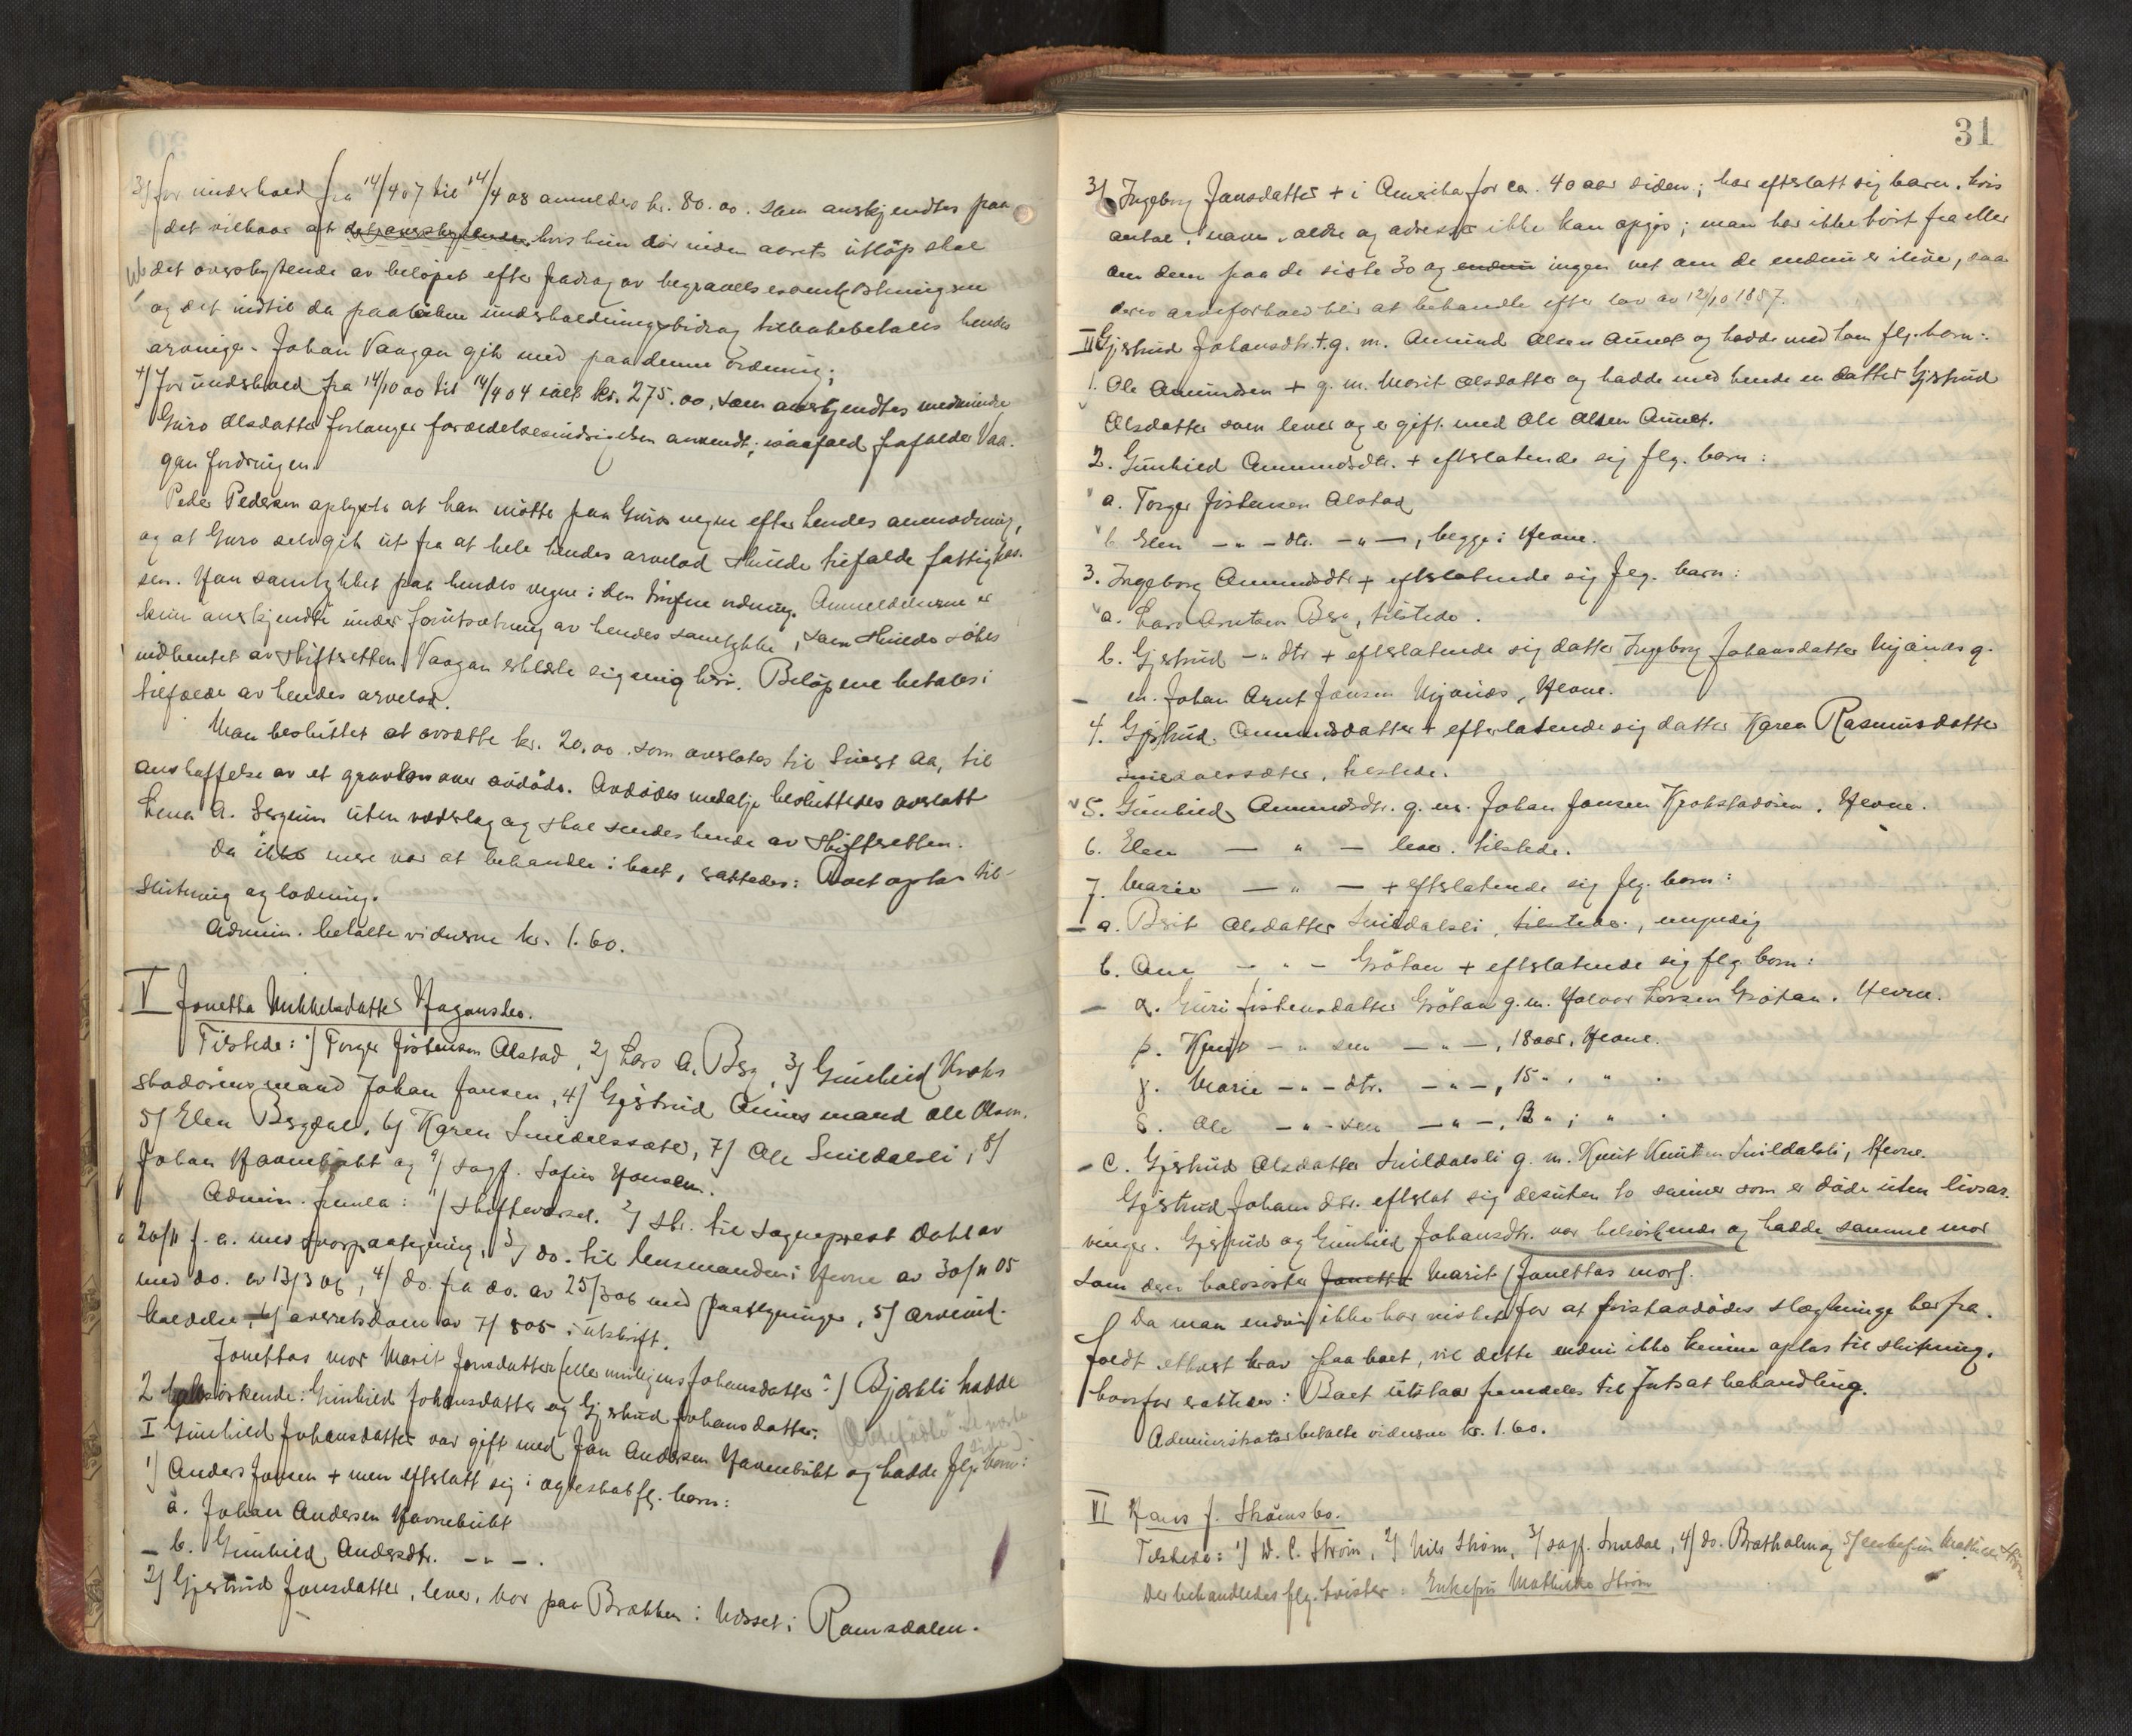 3) for underhold fra 14/4 07 til 14/4 08 anmeldes kr. 80.00. som anerkjendtes paa
det vilkaar at det overskytende, hvis hun dør inden aarets utløp skal
det overskytende av beløpet efter fradrag av begravelsesomkostningerne
og det indtil da paaløbne underholdningsbidrag tilbakebetales hendes
arvinger. Johan Vaagan gik med paa denne ordning;
4) For underhold fra 14/10 00 til 14/4 04 ialt kr. 275.00, som anerkjendtes medmindre
Guro Olsdatter forlanger forældelsesindsigelsen anvendt; isaafald frafalder Vaa-
gan fordringen.
Peder Pedersen oplyste at han møtte paa Guros vegne efter hendes anmodning,
og at Guro selv gik ut fra at hele hendes arvelod skulde tilfalde fattigkas-
sen. Han samtykket paa hendes vegne i den trufne ordning. Anmeldelserne er
kun anerkjendt under forutsætning av hendes samtykke, som skulde søkes
indhentet av skifteretten. Vaagan erklærte sig enig heri. Beløpene betales i
tilfælde av hendes arvelod.
Man besluttet at avsætte kr. 20.00 som overlates til Sivert Aa, til
anskaffelse av et gravkors over avdøde. Avdødes medalje besluttedes overlatt
Lena A. uten vederlag og skal sendes hende av skifteretten.
Da ikke mere var at behandle i boet, sattedes: Boet optas til
slutning og lodning.
Admin. betalte vidnerne kr. 1.60.
V Jonetta Mikkelsdatter Hagansbo.
Tilstede: 1) Torger Jostensen Alstad, 2) Lars A. Berg, 3) Gunhild Krok-
stadørens mand Johan Jonsen, 4) Gjertrud Aunes mand Ole Olsen.
5) Elen Bergdal, 6) Karen Snildalssæter, 7) Ole Snildalsli, 8)
Johan Havnebukt og 9) sagf. Sofus Hansen.
Admin. fremla: 1) Skiftevarsel. 2) skr. til sogneprest Dahl av
20/11 f.a. med svarpaategning, 3) do. til lensmanden i Hevne av 30/11 05
med do. av 13/3 06, 4) do. fra do. av 25/3 06 med paategninger, 5) arveind-
kaldelse, 6) averretsdom av 7/8 05 i utskrift.
Jonettas mor Marit Jonsdatter (eller muligens Johansdatter?) Bjerkli hadde
2 halvsøskende: Gunhild Johansdatter og Gjertrud Johansdatter.
I Gunhild Johansdatter var gift med Jon Andersen Havnebukt og hadde flg. born:
1) Anders Jonsen + men efterlatt sig i egteskab flg. barn:
a. Johan Andersen Havnebukt
b. Gunhild Andersdtr. - " -.
2) Gjertrud Jonsdatter, lever, bor paa Brækken i Nesset i Romsdalen.
31
3) Ingeborg Jonsdatter + i Amerika for ca. 40 aar siden; har efterlatt sig barn, hvis
antal, navn, alder og adresse ikke kan opgis; man har ikke hørt fra eller
om dem paa de siste 30 og endnu ingen vet om de endnu er ilive, saa
deres arveforhold blir at behandle efter lov av 12/10 1857.
II Gjertrud Johansdtr. + g. m. Amund Olsen Aunet og hadde med ham flg. born:
1. Ole Amundsen + g. m. Marit Olsdatter og hadde med hende en datter Gjertrud
Olsdatter som lever og er gift med Ole Olsen Aunet.
2. Gunhild Amundsdtr. + efterlatende sig flg. barn:
a. Torger Jostensen Alstad
b. Elen - " - dtr. - " -, begge i Hevne.
3. Ingeborg Amundsdtr. + efterlatende sig flg. barn:
a. Lars Arntsen Berg, tilstede.
b. Gjertrud - " dtr + efterlatende sig datter Ingeborg Johansdatter g.
m. Johan Arnt Jonsen, Hevne.
4. Gjertrud Amundsdatter + efterlatende sig datter Karen Rasmusdatter
Snildalssæter, tilstede.
5. Gunhild Amundsdtr. g. m. Johan Jonsen Krokstadøren. Hevne.
6. Elen - " - lever. tilstede.
7. Marie - " - + efterlatende sig flg. barn:
a. Brit Olsdatter Snildalsli, tilstede, umyndig
b. Ane - " - Grøtan + efterlatende sig flg. born:
α. Guri Jostensdatter Grøtan g. m. Halvor Larsen Grøtan. Hevne.
β. Knut - " sen - " -, 18 aar, Hevne.
γ. Marie - " - dtr. - " -, 15 " , " .
δ. Ole - " - sen - " -, 13 " ; " .
c. Gjertrud Olsdatter Snildalsli g. m. Knut Knutsen Snildalsli, Hevne.
Gjertrud Johansdtr. efterlot sig desuten to sønner som er døde uten livsar-
vinger. Gjertrud og Gunhild Johansdtr. var helsøskende og hadde samme mor
som deres halvsøster Jonetta Marit (Jonettas mor).
Da man endnu ikke har vished for at førstavdødes slegtninge har fra-
faldt ethvert krav paa boet, vil dette endnu ikke kunne optas til slutning.
hvorfor sattedes: Boet utstaar fremdeles til fortsat behandling.
Administrator betalte vidnerne kr. 1.60.
VI Hans J. Strømsbo.
Tilstede: 1) W. C. Strøm, 2) Nils Strøm, 3) sagf. Smedal, 4) do. Bratholm og 5) enkefru Mathilde Strøm
Der behandledes flg. tvister: Enkefru Mathilde Strøm